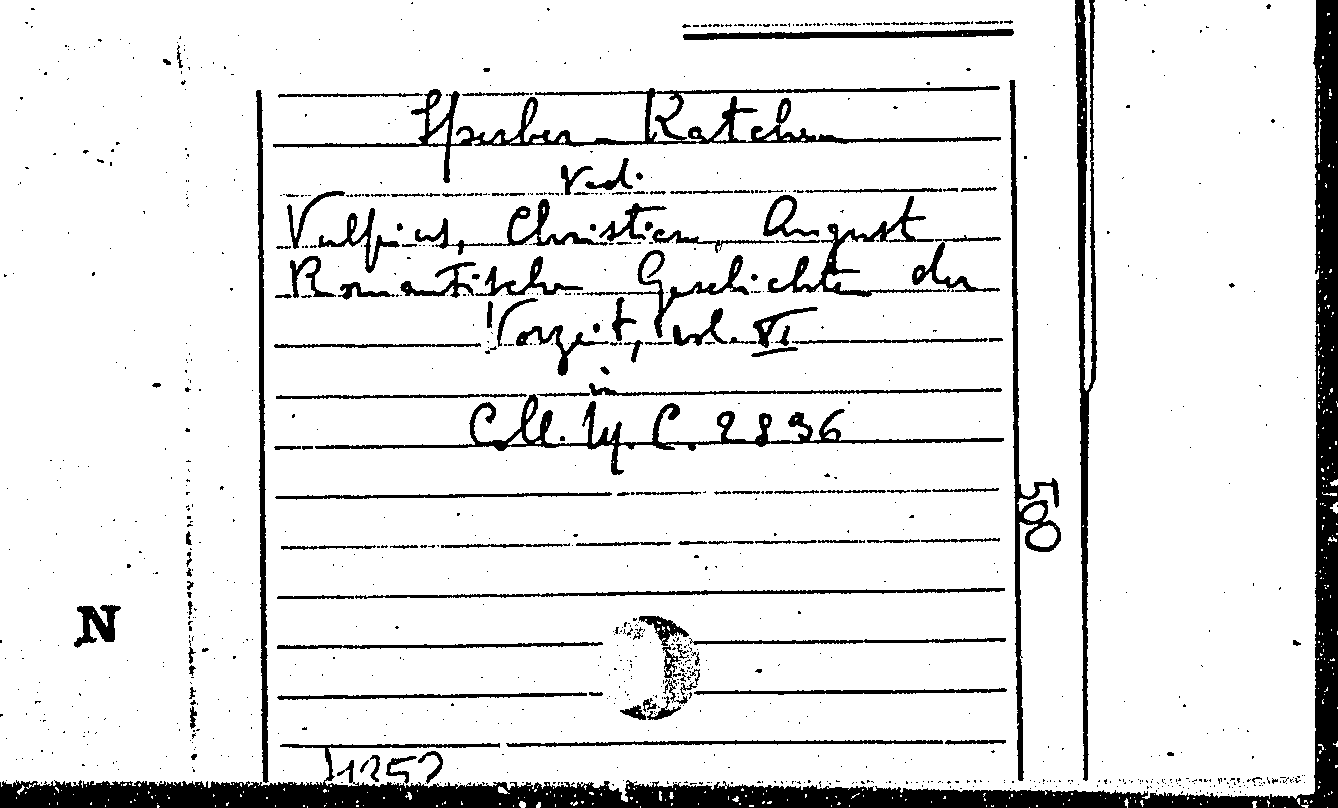 Sperber-Katchen
Ved.
Vulpius, Christian August
Romantische Geschichten der
Vorzeit, vol. VI
in
Coll. Ly. C. 2836
500
N
4252